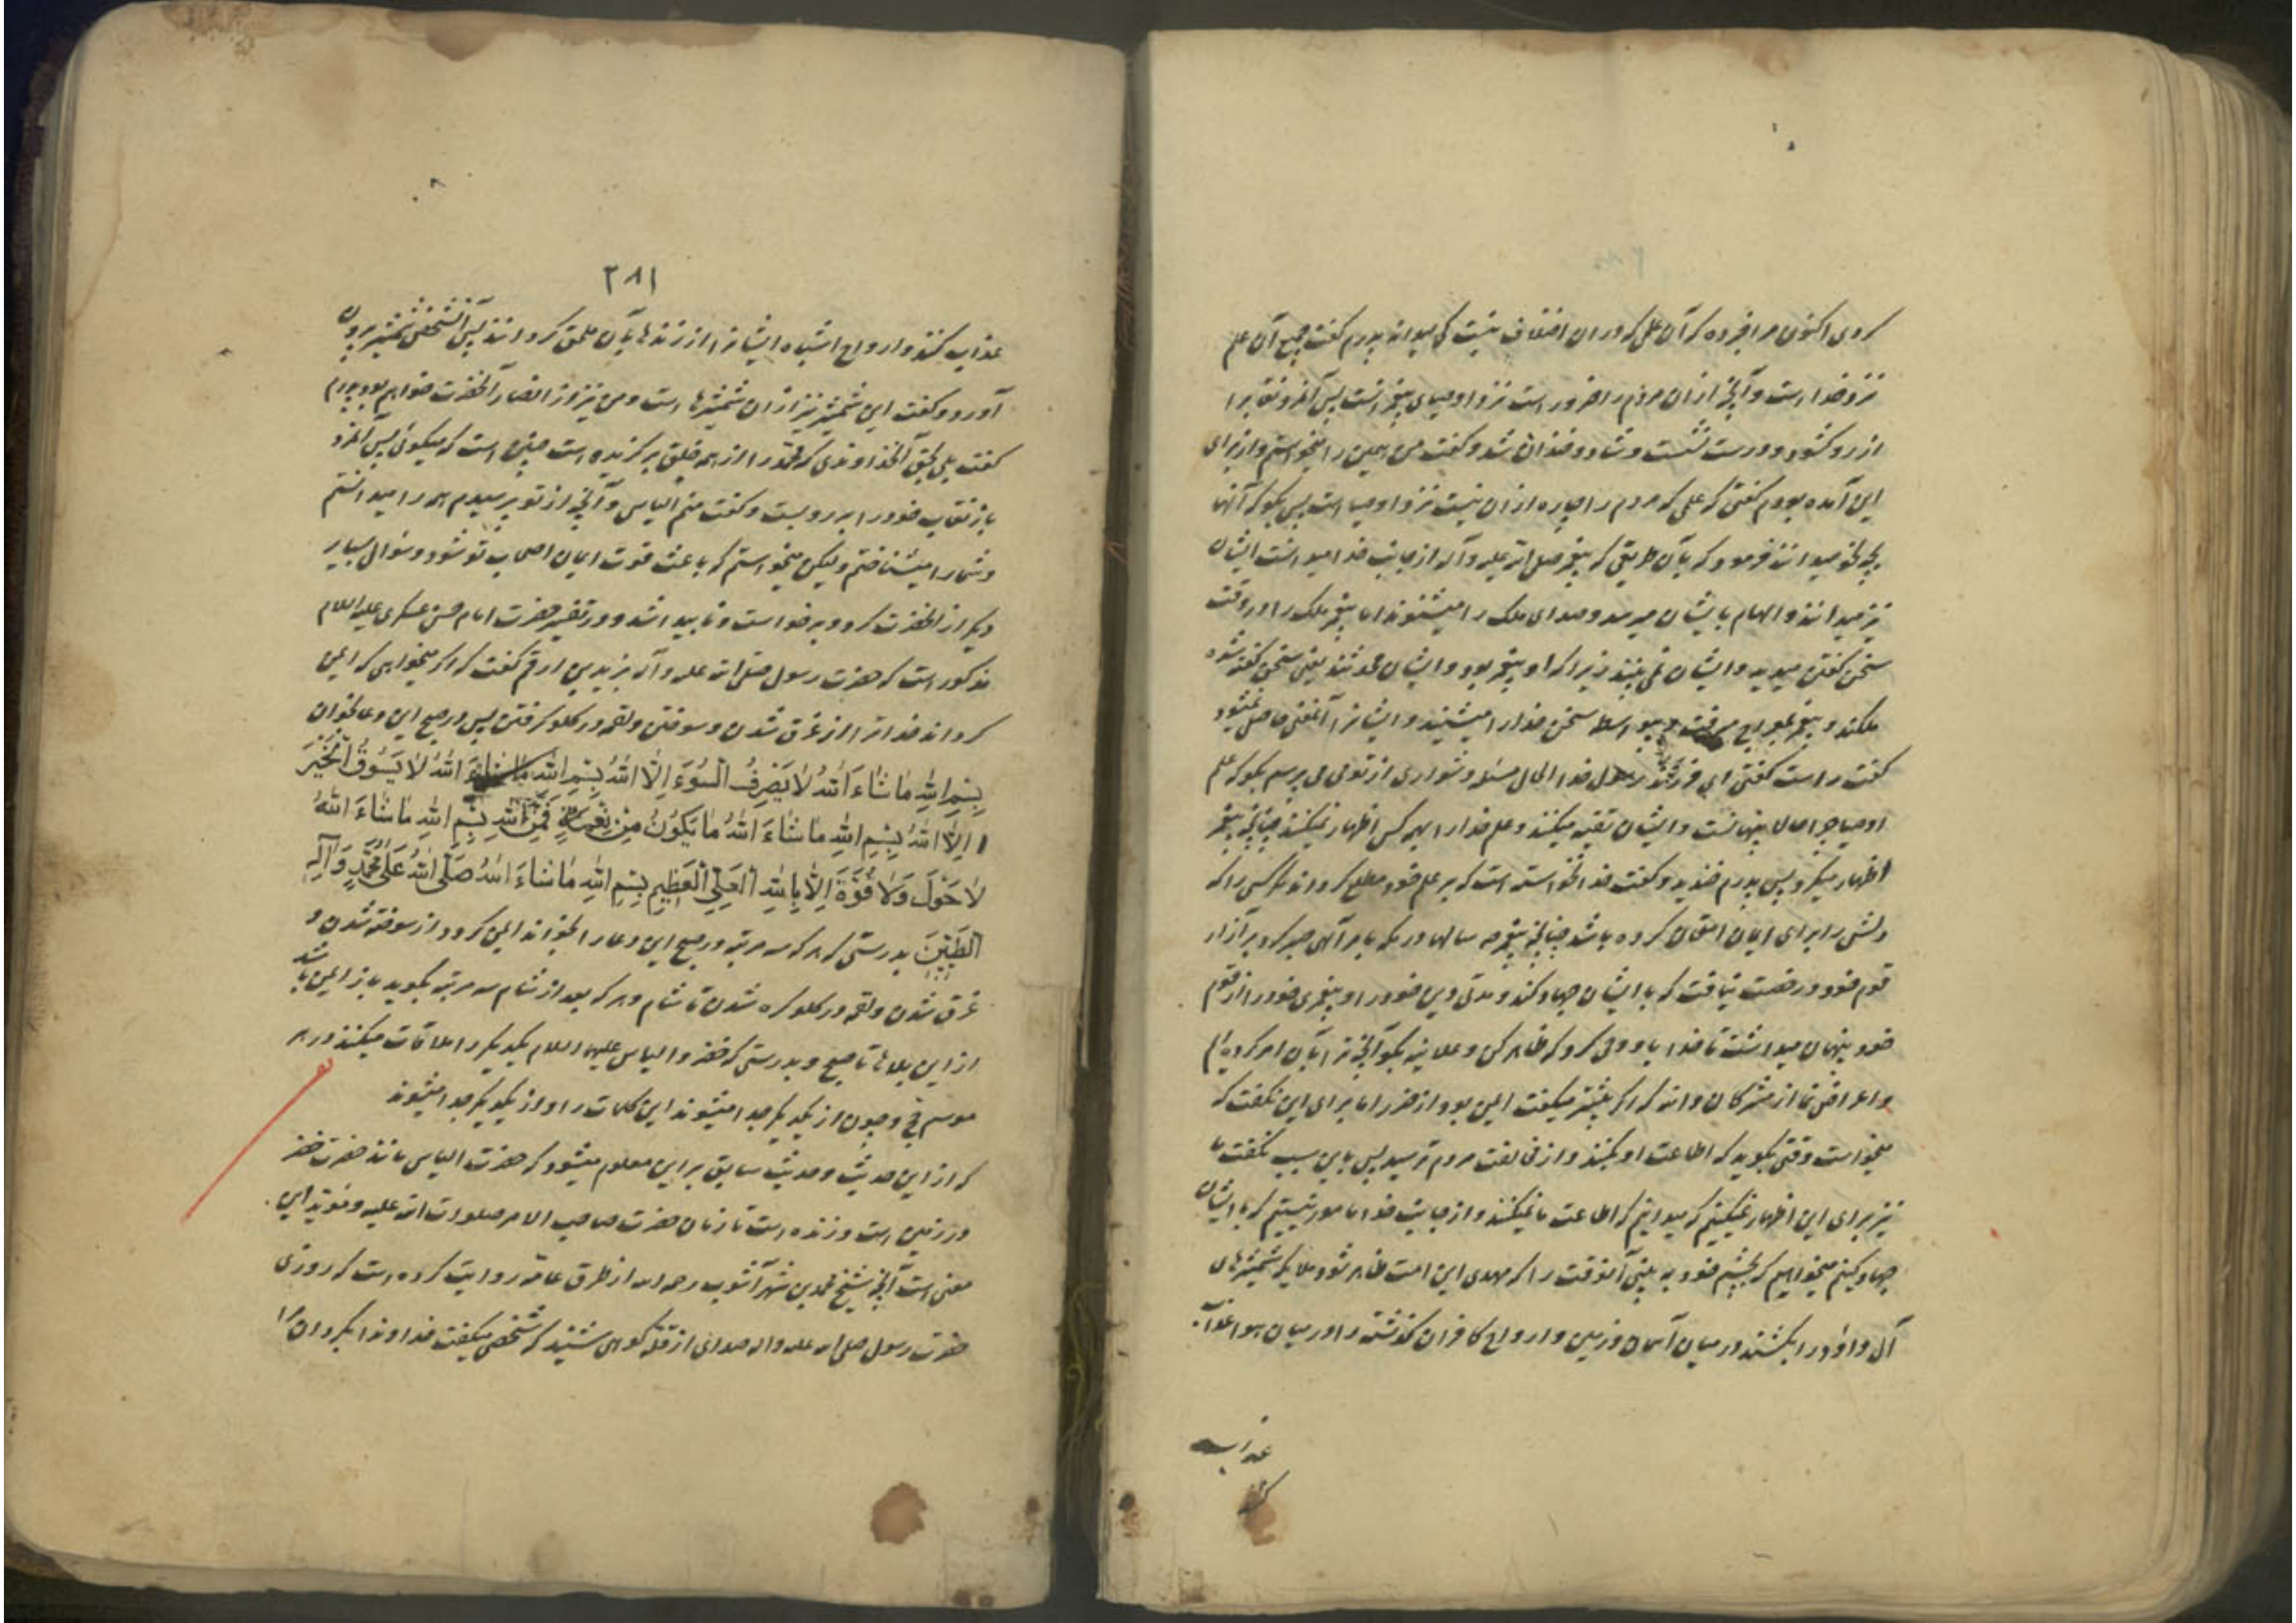 کردی اکنون مرا خبر ده که آن علمی که در ان اختلاف نیست کی میداند پدرم گفت جمیع آن علم
نزد خدا است و آنچه از ان مردم را ضرور است نزد اوصیای پیغمبرانست پس آنمرد نقاب را
از رو گشود و درست نشست و شاد و خندان شد و گفت من همین را میخواستم و از برای
این آمده بودم گفتی که علمی که مردم را چاره از ان نیست نزد اوصیا است پس بگو که آنها
بچه نحو میدانند فرمود که بآن طریقی که پیغمبر صلی الله علیه و آله از جانب خدا میدانست ایشان
نیز میدانند و الهام بایشان میرسد و صدای ملک را میشنوند اما پیغمبر ملک را در وقت
سخن گفتن میدید و ایشان نمی بینند زیرا که او پیغمبر بود و ایشان محدثند یعنی سخن گفته شده
ملکند و پیغمبر بمعراج میرفت و بیواسطه سخن خدا را میشنید و ایشانرا آنمعنی حاصل نمیشود
گفت راست گفتی ای فرزند رسول خدا الحال مسئله دشواری از تو می پرسم بگو که علم
اوصیا چرا حالا پنهانست و ایشان تقیه میکنند و علم خدا را بهمه کس اظهار نمیکنند چنانچه پیغمبر
اظهار میکرد پس پدرم خندید و گفت خدا نخواسته است که بر علم خود مطلع گرداند مگر کسی را که
دلش را برای ایمان امتحان کرده باشد چنانچه پیغمبر صه سالها در مکه بامر آلهی صبر کرد بر آزار
قوم خود و رخصت نیافت که با ایشان جهاد کند و مدتی دین خود را و پیغمبری خود را از قوم
خود پنهان میداشت تا خدا باو وحی کرد که ظاهر کن و علانیه بگو آنچه ترا بآن امر کرده ام
و اعراض نما از مشرکان و اند که اگر پیشتر میگفت ایمن بود از ضرر اما برای این نگفت که
میخواست وقتی بگوید که اطاعت او بکنند و از مخالفت مردم ترسید پس باین سبب نگفت ما
نیز برای این اظهار نمیکنیم که میدانیم که اطاعت ما نمیکنند و از جانب خدا مامور نیستیم که با ایشان
جهاد کنیم میخواهیم که بچشم خود به بینی آنوقت را که مهدی این امت ظاهر شود ملایکه شمشیرهای
آل داود را بکشند در میان آسمان و زمین و ارواح کافران گذشته را در میان هوا عذاب
عذاب
کنند
۲۸۱
عذاب کنند و ارواح اشباه ایشانرا از زنده ها بآن ملحق گردانند پس آنشخص شمشیر بیرون
آورد و گفت این شمشیر نیز از ان شمشیرها است و من نیز از انصار آنحضرت خواهم بود پدرم
گفت بلی بحق آنخداوندی که محمد را از همه خلق برگزیده است چنین است که میگوئی پس آنمرد
باز نقاب خود را بر رو بست و گفت منم الیاس و آنچه از تو پرسیدم همه را میدانستم
و شما را میشناختم ولیکن میخواستم که باعث قوت ایمان اصحاب تو شود و سئوال بسیار
دیگر از آنحضرت کرد و برخواست و ناپیدا شد و در تفسیر حضرت امام حسن عسکری علیه السلام
مذکور است که حضرت رسول صلی الله علیه و آله بزید بن ارقم گفت که اگر میخواهی که ایمن
گرداند خدا ترا از غرق شدن و سوختن و لقمه در گلو گرفتن پس در صبح این دعا بخوان
بِسْمِ اللهِ مَا شَاءَ اللهُ لَا يَصْرِفُ السُّوءَ اِلَّا اللهُ بِسْمِ اللهِ مَا شَاءَ اللهُ لَا يَسُوقُ الْخَيْرَ
اِلَّا اللهُ بِسْمِ اللهِ مَا شَاءَ اللهُ مَا يَكُونُ مِنْ نِعْمَةٍ فَمِنَ اللهِ بِسْمِ اللهِ مَا شَاءَ اللهُ
لَا حَوْلَ وَلَا قُوَّةَ اِلَّا بِاللهِ الْعَلِيِّ الْعَظِيمِ بِسْمِ اللهِ مَا شَاءَ اللهُ صَلَّى اللهُ عَلَى مُحَمَّدٍ وَآلِهِ
الطَّيِّبِينَ بدرستی که هر که سه مرتبه در صبح این دعا را بخواند ایمن گردد از سوخته شدن و
غرق شدن و لقمه در گلو گره شدن تا شام و هر که بعد از شام سه مرتبه بگوید باز ایمن باشد
از این بلاها تا صبح و بدرستی که خضر و الیاس علیهما السلام یکدیگر را ملاقات میکنند در هر
موسم حج و چون از یکدیگر جدا میشوند این کلمات را و از یکدیگر جدا میشوند
که از این حدیث و حدیث سابق بر این معلوم میشود که حضرت الیاس مانند حضرت خضر
در زمین است و زنده است تا زمان حضرت صاحب الامر صلوات الله علیه و مؤید این
معنی است آنچه شیخ محمد بن شهر آشوب رحمه الله از طرق عامه روایت کرده است که روزی
حضرت رسول صلی الله علیه و اله صدائی از قله کوهی شنید که شخصی میگفت خداوندا بگردان مرا